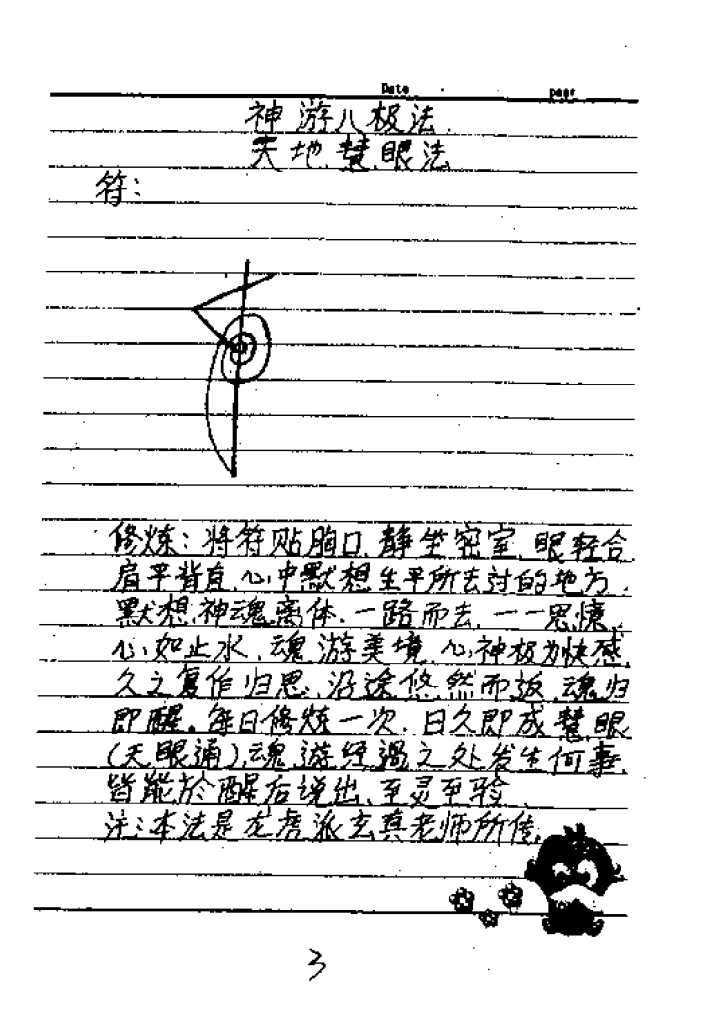 Date
page
神游八极法
天地慧眼法
符:
修炼:将符贴胸口,静坐密室,眼轻合
肩平背直,心中默想生平所去过的地方,
默想神魂离体,一路而去,一一思憶,
心如止水,魂游美境,心神极为快感,
久之复作归思,沿途悠然而返,魂归
即醒。每日修炼一次,日久即成慧眼
(天眼通),魂游经过之处发生何事,
皆能於醒后说出,至灵至验
注:本法是龙虎派玄真老师所传,
3